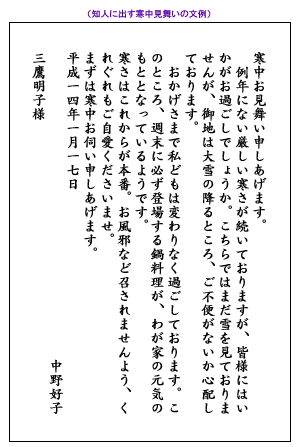 （知人に出す寒中見舞いの文例）
寒中お見舞い申しあげます。
　例年にない厳しい寒さが続いておりますが、皆様にはい
かがお過ごしでしょうか。こちらではまだ雪を見ておりま
せんが、御地は大雪の降るところ、ご不便がないか心配し
ております。
　おかげさまで私どもは変わりなく過ごしております。こ
のところ、週末に必ず登場する鍋料理が、わが家の元気の
もととなっているようです。
寒さはこれからが本番。お風邪など召されませんよう、く
れぐれもご自愛くださいませ。
まずは寒中お伺い申しあげます。
平成一四年一月一七日
中野好子
三鷹明子様